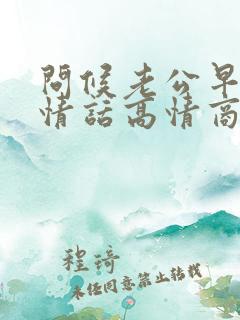 問候老公早
情話高情商
程琦
未经同意禁止转载